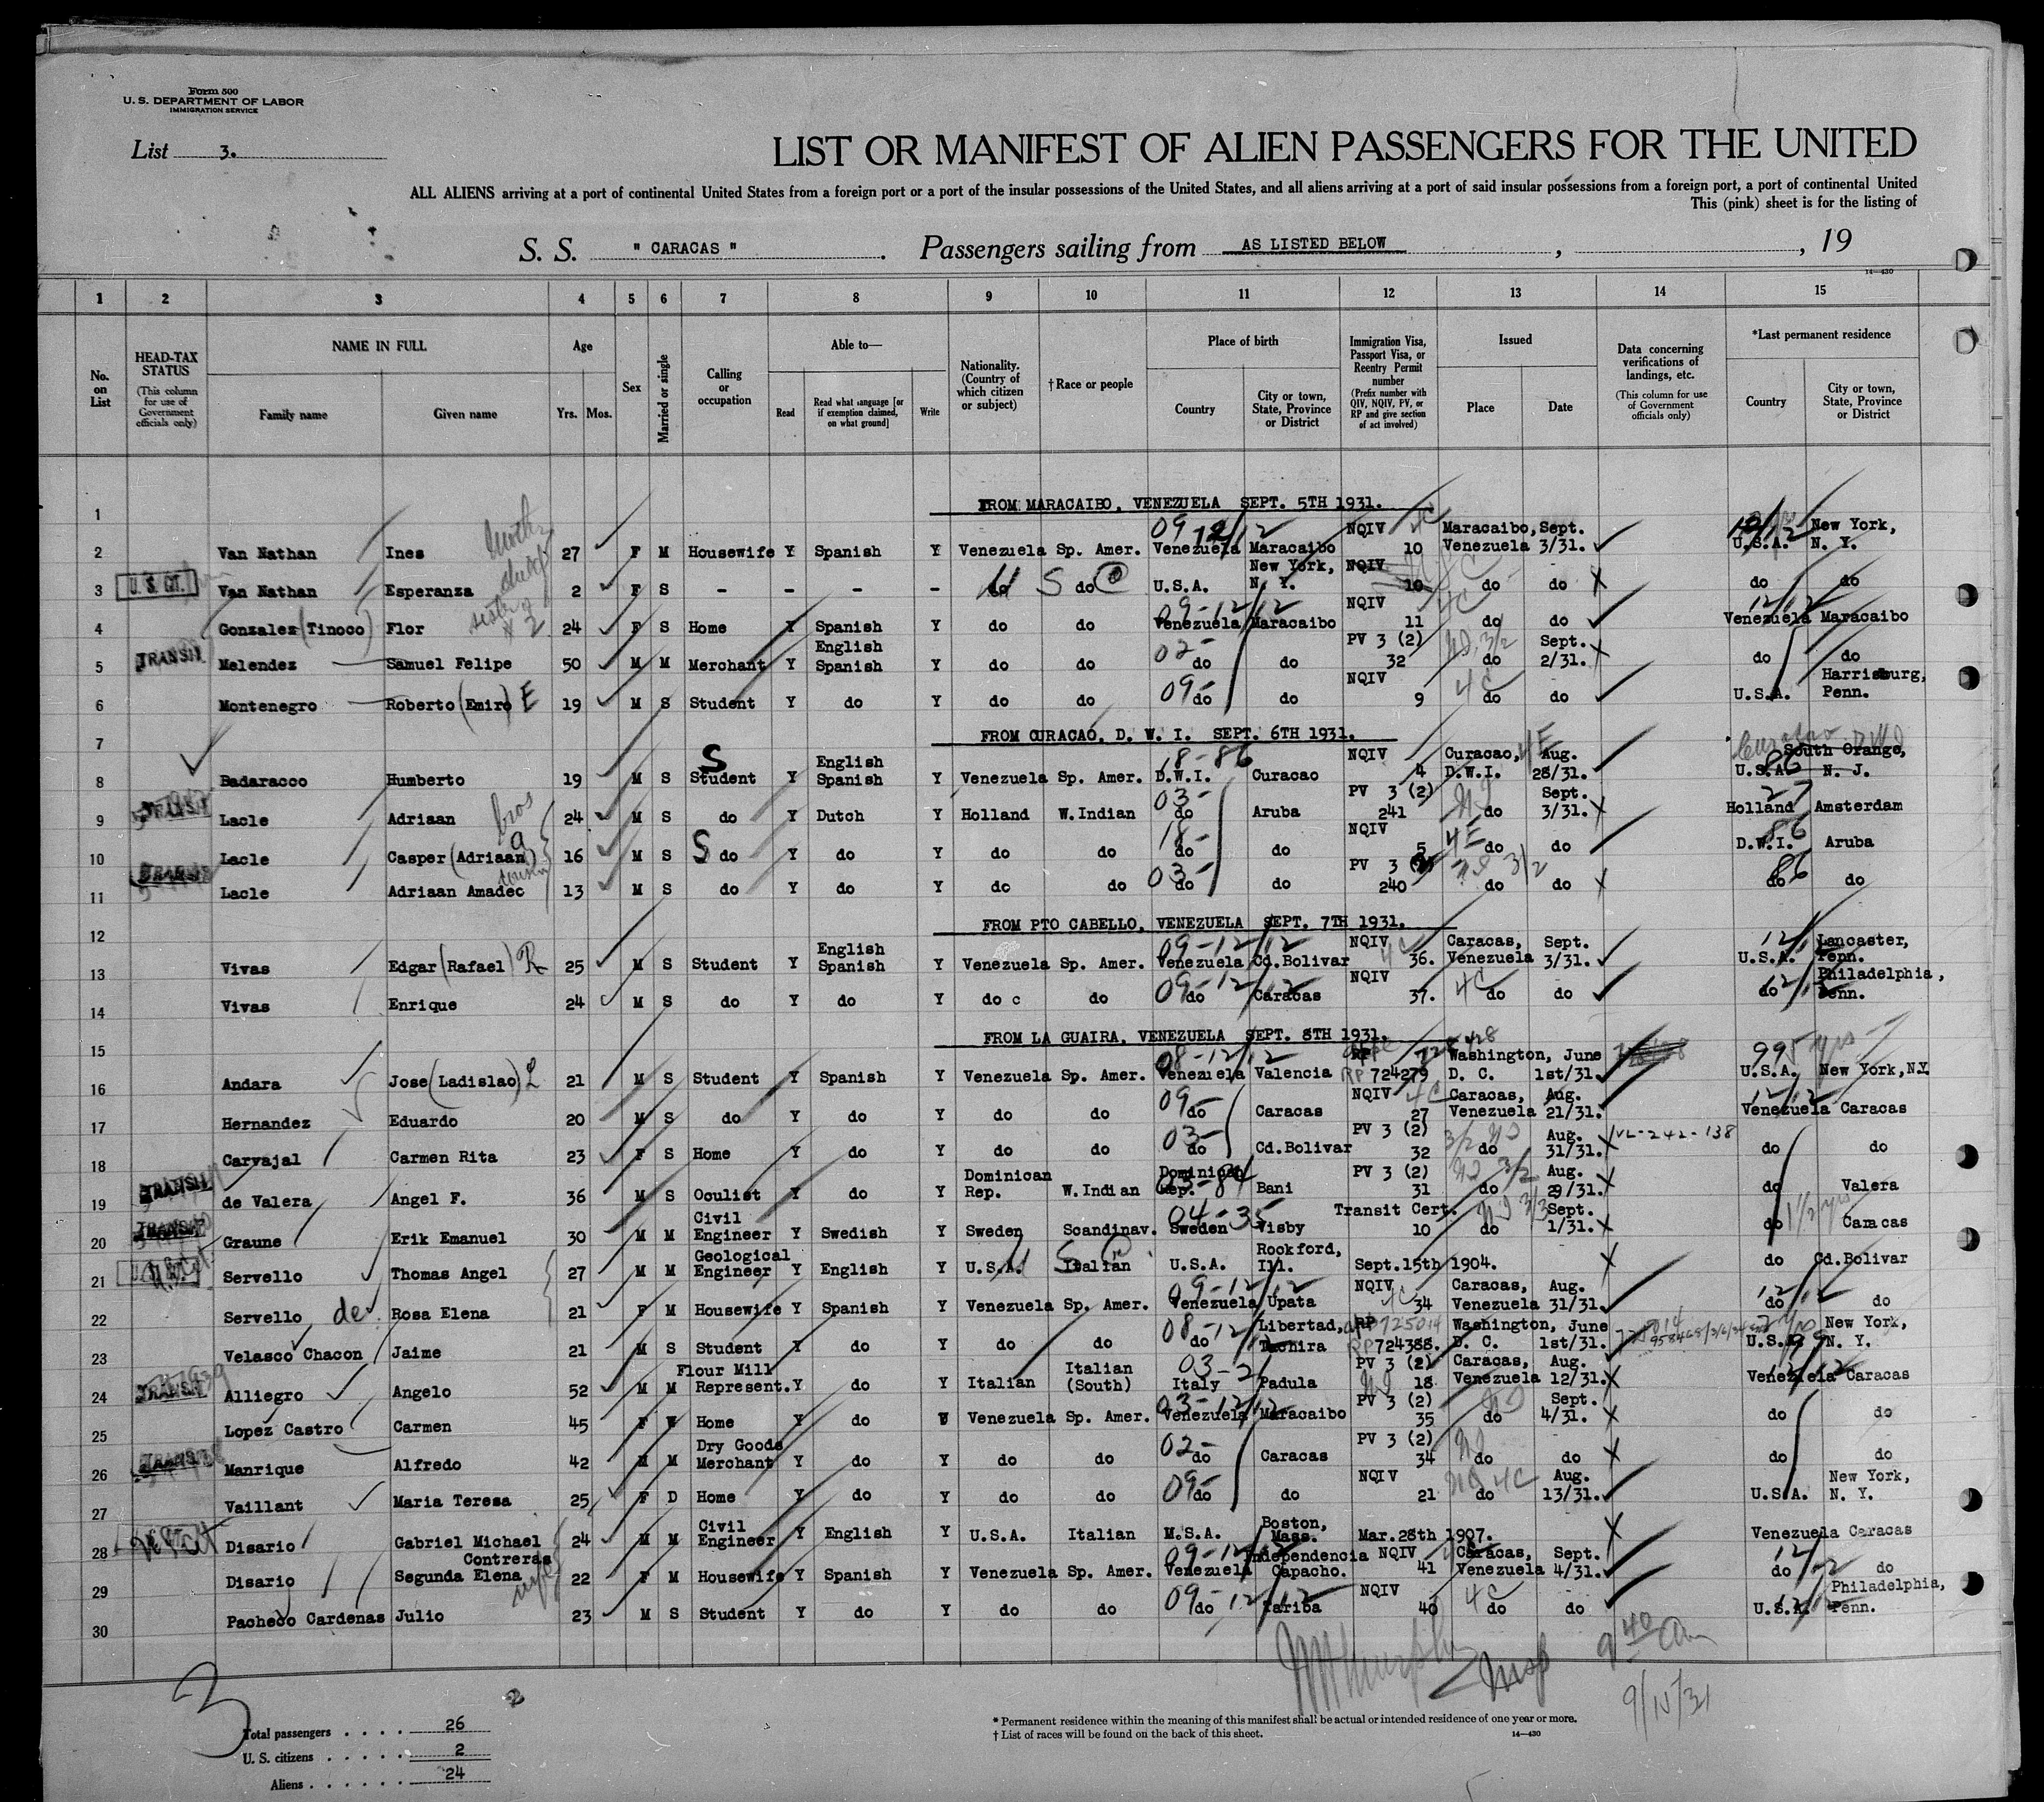 Form 500
U. S. DEPARTMENT OF LABOR
IMMIGRATION SERVICE
List 3.
LIST OR MANIFEST OF ALIEN PASSENGERS FOR THE UNITED
ALL ALIENS arriving at a port of continental United States from a foreign port or a port of the insular possessions of the United States, and all aliens arriving at a port of said insular possessions from a foreign port, a port of continental United
This (pink) sheet is for the listing of
S. S. " CARACAS ". Passengers sailing from AS LISTED BELOW , , 19
14—430
1 2 3 4 5 6 7 8 9 10 11 12 13 14 15
No. on List
HEAD-TAX STATUS (This column for use of Government officials only)
NAME IN FULL Family name Given name
Age Yrs. Mos.
Sex
Married or single
Calling or occupation
Able to— Read Read what language [or if exemption claimed, on what ground] Write
Nationality. (Country of which citizen or subject)
† Race or people
Place of birth Country City or town, State, Province or District
Immigration Visa, Passport Visa, or Reentry Permit number (Prefix number with QIV, NQIV, PV, or RP and give section of act involved)
Issued Place Date
Data concerning verifications of landings, etc. (This column for use of Government officials only)
*Last permanent residence Country City or town, State, Province or District
1 FROM MARACAIBO, VENEZUELA SEPT. 5TH 1931.
2 Van Nathan Ines 27 F M Housewife Y Spanish Y Venezuela Sp. Amer. Venezuela Maracaibo NQIV 10 Maracaibo, Venezuela Sept. 3/31. U.S.A. New York, N. Y.
3 U. S. CIT. Van Nathan Esperanza 2 F S - - - - do do U.S.A. New York, N. Y. NQIV 10 do do do do
4 Gonzalez (Tinoco) Flor sister of #2 24 F S Home Y Spanish Y do do Venezuela Maracaibo NQIV 11 do do Venezuela Maracaibo
5 TRANSIT Melendez Samuel Felipe 50 M M Merchant Y English Spanish Y do do do do PV 3 (2) 32 do Sept. 2/31. do do
6 Montenegro Roberto (Emiro) E 19 M S Student Y do Y do do do do NQIV 9 do do U.S.A. Harrisburg, Penn.
7 FROM CURACAO, D. W. I. SEPT. 6TH 1931.
8 Badaracco Humberto 19 M S Student Y English Spanish Y Venezuela Sp. Amer. D.W.I. Curacao NQIV 4 Curacao, D.W.I. Aug. 28/31. U.S.A. South Orange, N. J.
9 TRANSIT Lacle Adriaan bros 24 M S do Y Dutch Y Holland W.Indian do Aruba PV 3 (2) 241 do Sept. 3/31. Holland Amsterdam
10 Lacle Casper (Adriaan) a 16 M S do Y do Y do do do do NQIV 5 do do D.W.I. Aruba
11 TRANSIT Lacle Adriaan Amadeo 13 M S do Y do Y do do do do PV 3 (2) 240 do do do do
12 FROM PTO CABELLO, VENEZUELA SEPT. 7TH 1931.
13 Vivas Edgar (Rafael) R 25 M S Student Y English Spanish Y Venezuela Sp. Amer. Venezuela Cd.Bolivar NQIV 36. Caracas, Venezuela Sept. 3/31. U.S.A. Lancaster, Penn.
14 Vivas Enrique 24 M S do Y do Y do c do do Caracas NQIV 37. do do do Philadelphia, Penn.
15 FROM LA GUAIRA, VENEZUELA SEPT. 8TH 1931.
16 Andara Jose (Ladislao) L 21 M S Student Y Spanish Y Venezuela Sp. Amer. Venezuela Valencia RP 724279 Washington, D. C. June 1st/31. U.S.A. New York, N.Y.
17 Hernandez Eduardo 20 M S do Y do Y do do do Caracas NQIV 27 Caracas, Venezuela Aug. 21/31. Venezuela Caracas
18 Carvajal Carmen Rita 23 F S Home Y do Y do do do Cd.Bolivar PV 3 (2) 32 do Aug. 31/31. do do
19 TRANSIT de Valera Angel F. 36 M S Oculist Y do Y Dominican Rep. W.Indian Dominican Rep. Bani PV 3 (2) 31 do Aug. 29/31. do Valera
20 TRANSIT Graune Erik Emanuel 30 M M Civil Engineer Y Swedish Y Sweden Scandinav. Sweden Visby Transit Cert. 10 do Sept. 1/31. do Caracas
21 Servello Thomas Angel 27 M M Geological Engineer Y English Y U.S.A. Italian U.S.A. Rockford, Ill. Sept.15th 1904. do Cd.Bolivar
22 Servello de Rosa Elena 21 F M Housewife Y Spanish Y Venezuela Sp. Amer. Venezuela Upata NQIV 34 Caracas, Venezuela Aug. 31/31. do do
23 Velasco Chacon Jaime 21 M S Student Y do Y do do do Libertad, Tachira RP 724388. Washington, D. C. June 1st/31. U.S.A. New York, N. Y.
24 TRANSIT Alliegro Angelo 52 M M Flour Mill Represent. Y do Y Italian Italian (South) Italy Padula PV 3 (2) 18 Caracas, Venezuela Aug. 12/31. Venezuela Caracas
25 Lopez Castro Carmen 45 F W Home Y do Y Venezuela Sp. Amer. Venezuela Maracaibo PV 3 (2) 35 do Sept. 4/31. do do
26 TRANSIT Manrique Alfredo 42 M M Dry Goods Merchant Y do Y do do do Caracas PV 3 (2) 34 do do do do
27 Vaillant Maria Teresa 25 F D Home Y do Y do do do do NQIV 21 do Aug. 13/31. U.S.A. New York, N. Y.
28 Disario Gabriel Michael 24 M M Civil Engineer Y English Y U.S.A. Italian M.S.A. Boston, Mass. Mar.28th 1907. Venezuela Caracas
29 Disario Contreras Segunda Elena wife 22 F M Housewife Y Spanish Y Venezuela Sp. Amer. Venezuela Independencia Capacho. NQIV 41 Caracas, Venezuela Sept. 4/31. do do
30 Pacheco Cardenas Julio 23 M S Student Y do Y do do do Tariba NQIV 40 do do U.S.A. Philadelphia, Penn.
9 40 am
9/15/31
3
Total passengers . . . . 26
U. S. citizens . . . . . 2
Aliens . . . . . . 24
* Permanent residence within the meaning of this manifest shall be actual or intended residence of one year or more.
† List of races will be found on the back of this sheet.
14—430